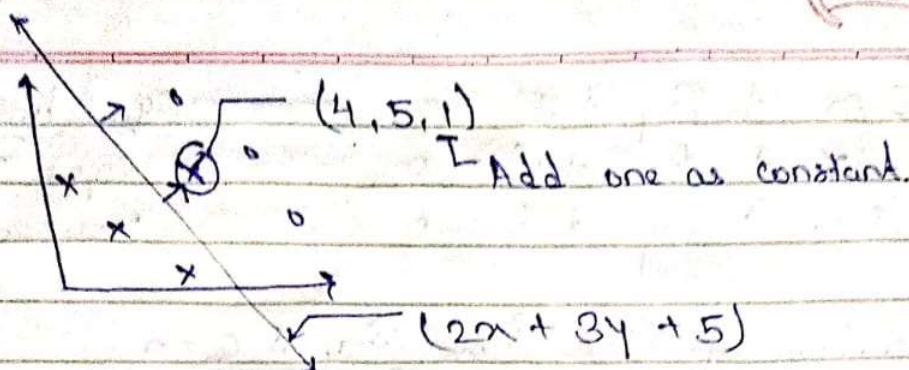 (4, 5, 1)
Add one as constant.
(2x + 3y + 5)